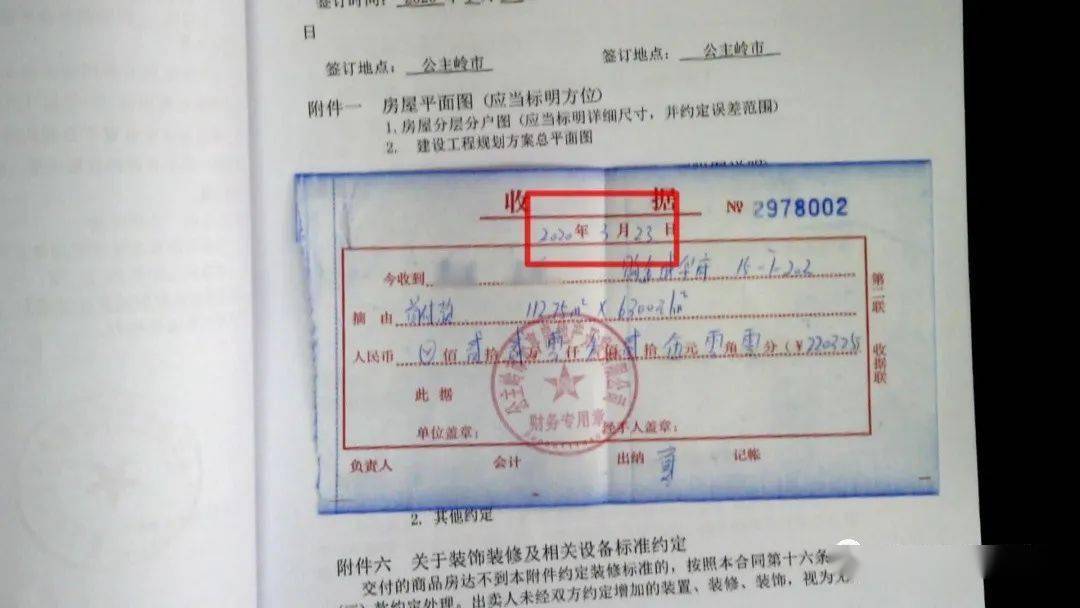 签订时间： 2020 年
日
签订地点： 公主岭市 签订地点： 公主岭市
附件一 房屋平面图（应当标明方位）
1.房屋分层分户图（应当标明详细尺寸，并约定误差范围）
2. 建设工程规划方案总平面图
收 据 № 2978002
2020年 3月 23日
今收到 15-1-202
摘 由 首付款 112.75m² × 6300
人民币 佰贰拾贰万零仟 佰贰拾伍元零角零分（￥220325
此 据
单位盖章： 经手人盖章：
负责人 会计 出纳 记帐
第二联 收据联
财务专用章
2. 其他约定
附件六 关于装饰装修及相关设备标准约定
交付的商品房达不到本附件约定装修标准的，按照本合同第十六条
款约定处理。出卖人未经双方约定增加的装置、装修、装饰，视为无